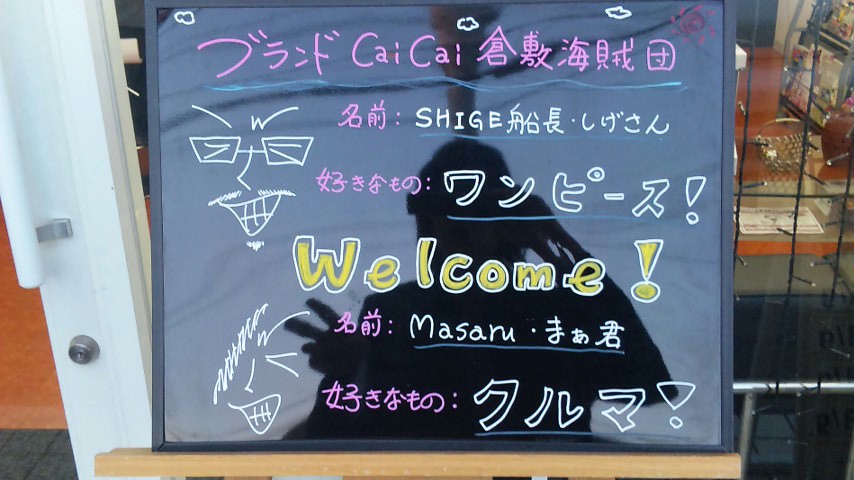 ブランドCaiCai倉敷海賊団
名前:SHIGE船長・しげさん
好きなもの:ワンピース!
Welcome!
名前:Masaru・まぁ君
好きなもの:クルマ!